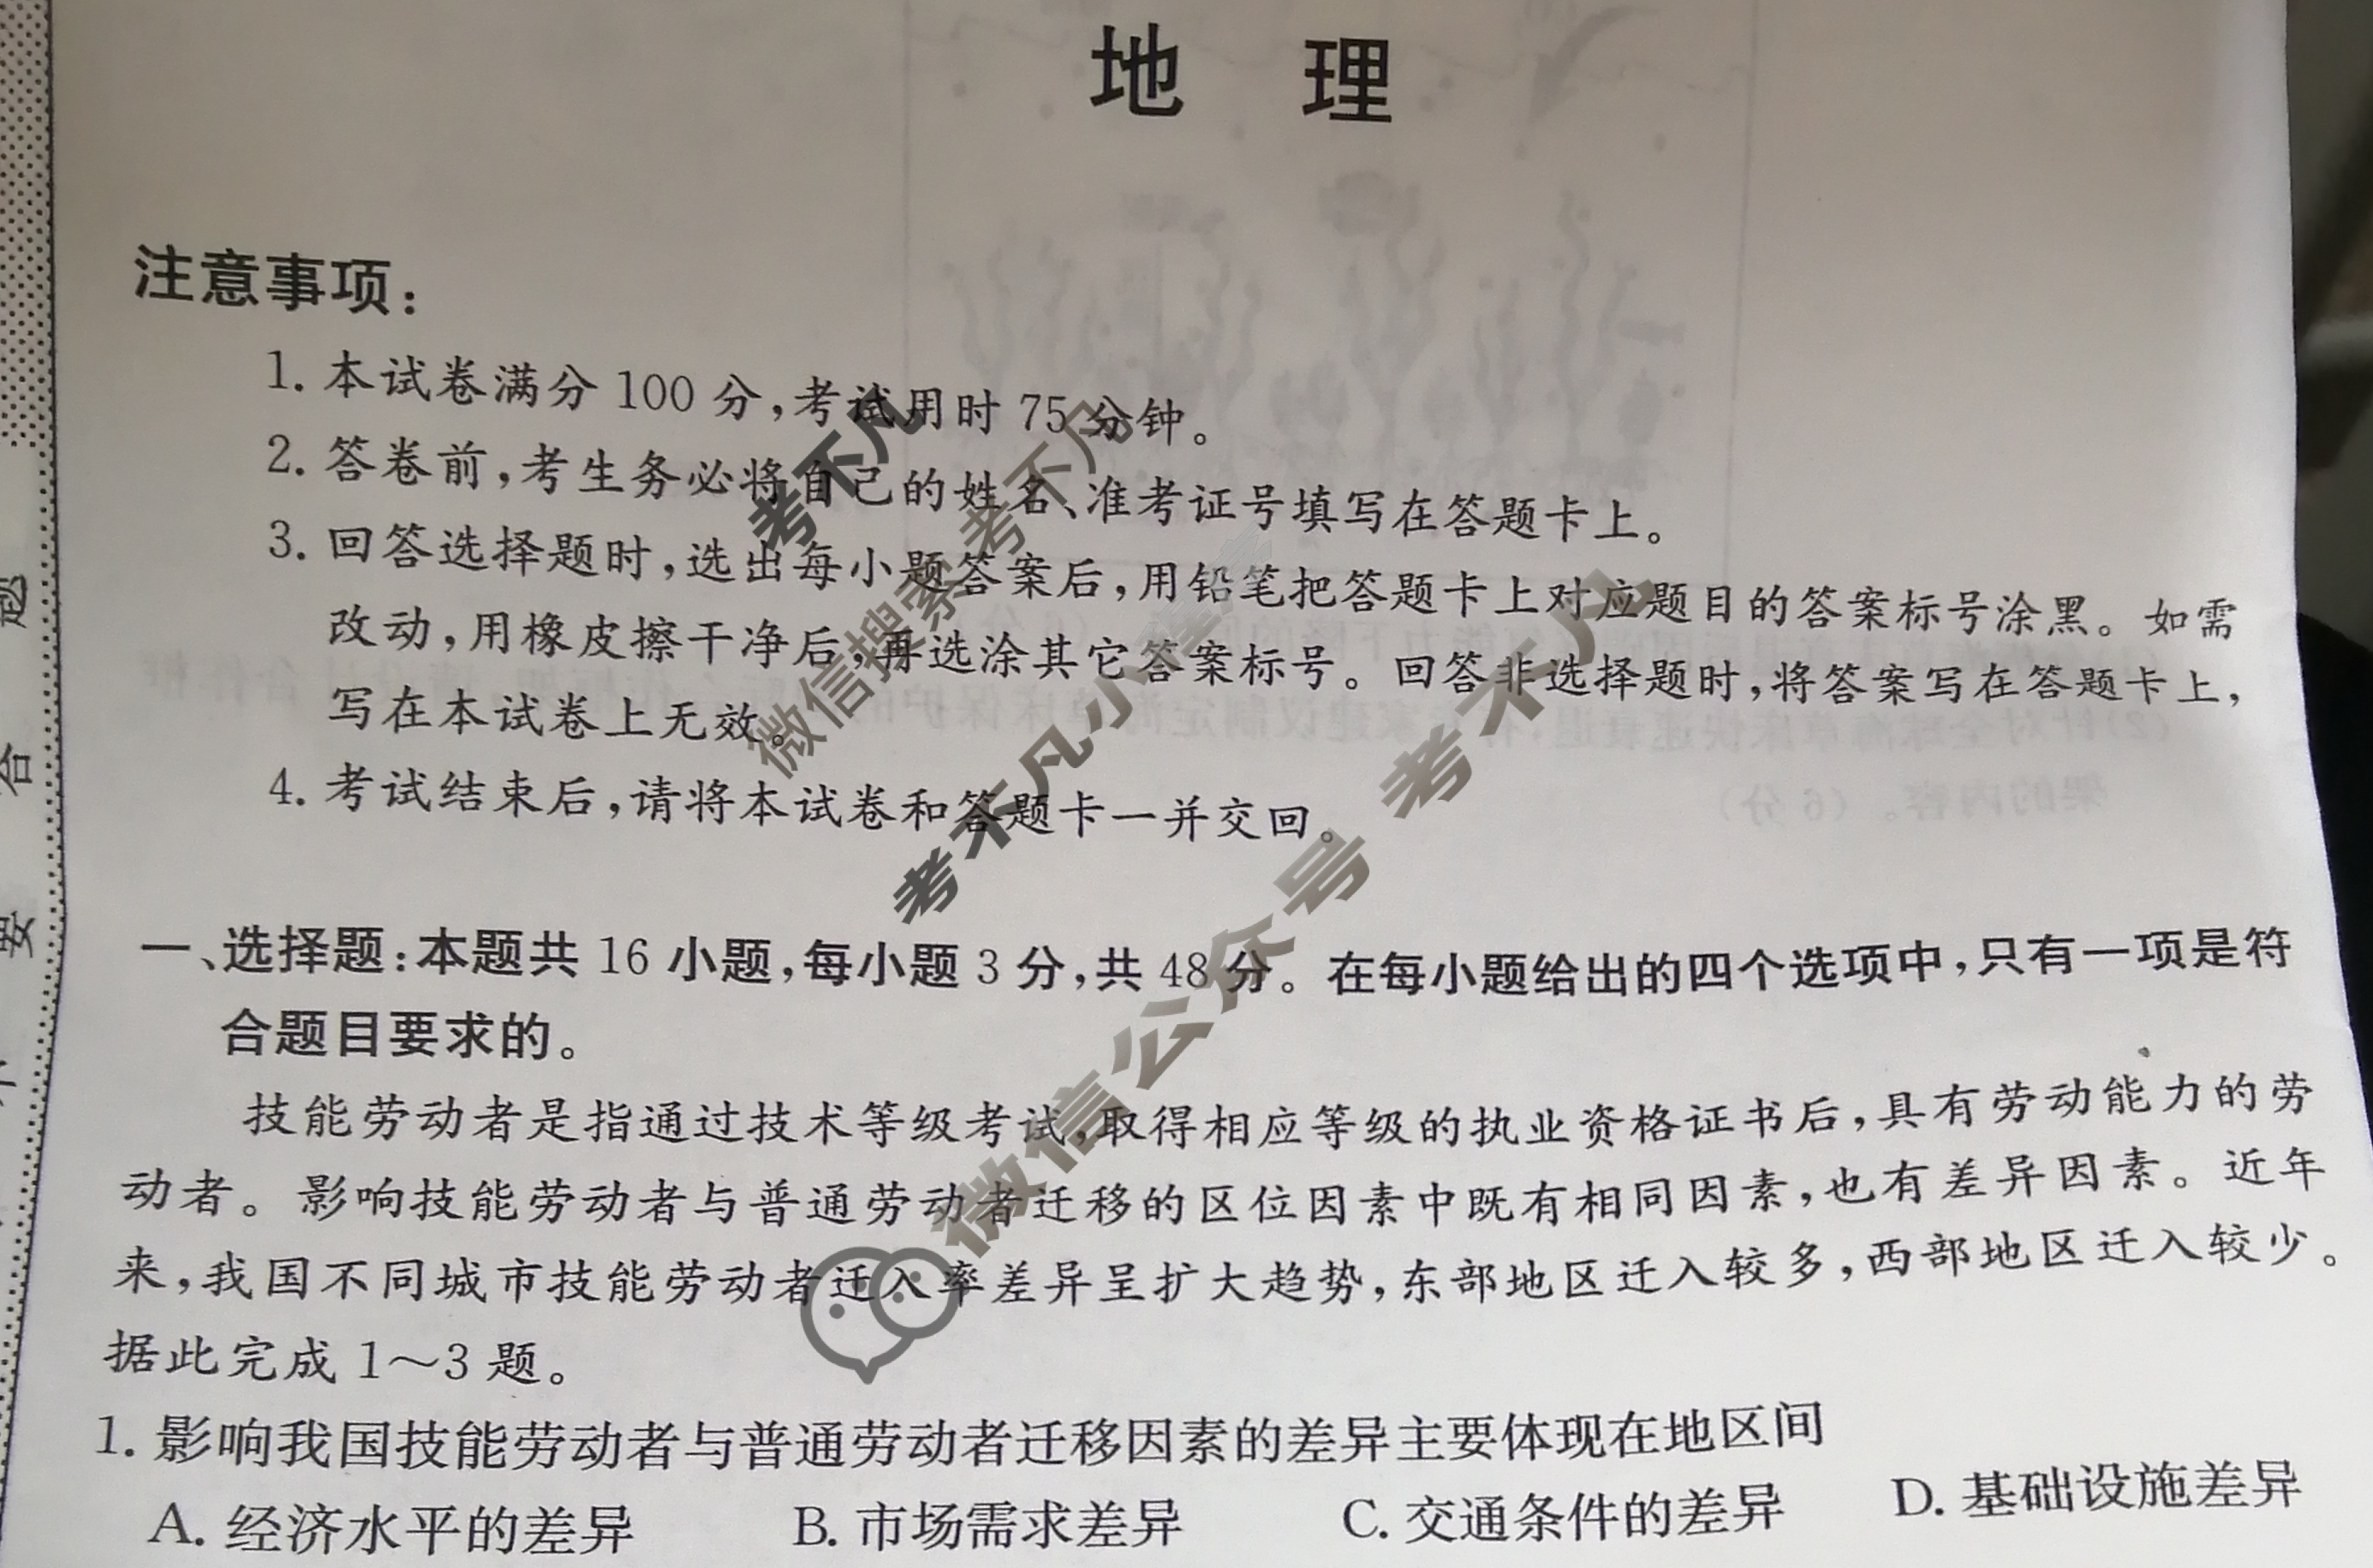 地 理
注意事项：
1. 本试卷满分 100 分，考试用时 75 分钟。
2. 答卷前，考生务必将自己的姓名、准考证号填写在答题卡上。
3. 回答选择题时，选出每小题答案后，用铅笔把答题卡上对应题目的答案标号涂黑。如需
改动，用橡皮擦干净后，再选涂其它答案标号。回答非选择题时，将答案写在答题卡上，
写在本试卷上无效。
4. 考试结束后，请将本试卷和答题卡一并交回。
一、选择题：本题共 16 小题，每小题 3 分，共 48 分。在每小题给出的四个选项中，只有一项是符
合题目要求的。
技能劳动者是指通过技术等级考试，取得相应等级的执业资格证书后，具有劳动能力的劳
动者。影响技能劳动者与普通劳动者迁移的区位因素中既有相同因素，也有差异因素。近年
来，我国不同城市技能劳动者迁入率差异呈扩大趋势，东部地区迁入较多，西部地区迁入较少。
据此完成 1～3 题。
1. 影响我国技能劳动者与普通劳动者迁移因素的差异主要体现在地区间
A. 经济水平的差异 B. 市场需求差异 C. 交通条件的差异 D. 基础设施差异
题
答
要
考不凡
微信搜索 考不凡
考不凡小
微信公众号 考不凡